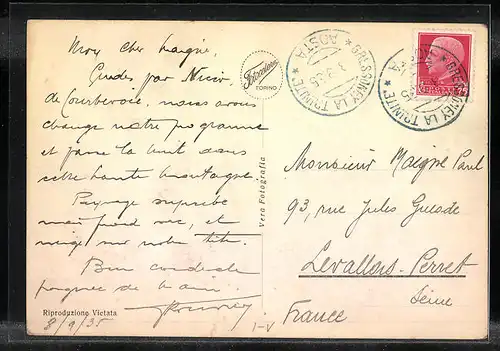 Mon cher Maigne,
Guidés par
de Courbevoie, nous avons
changé notre programme
et passé la nuit dans
cette haute montagne.
Paysage superbe
mais froid vif, et
neige sur notre tête.
Bien cordiale
poignée de main
8/9/35
Riproduzione Vietata
Vera Fotografia
Fotocelere
TORINO
GRESSONEY LA TRINITE
AOSTA
GRESSONEY LA TRINITE
Monsieur Maigne Paul
93, rue Jules Guesde
Levallois-Perret
Seine
France
I-V